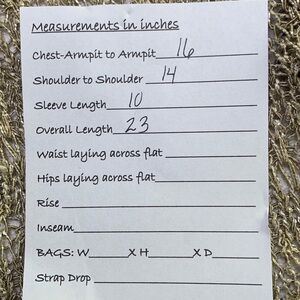 Measurements in inches
Chest-Armpit to Armpit 16
Shoulder to Shoulder 14
Sleeve Length 10
Overall Length 23
Waist laying across flat
Hips laying across flat
Rise
Inseam
BAGS: W____X H____X D____
Strap Drop